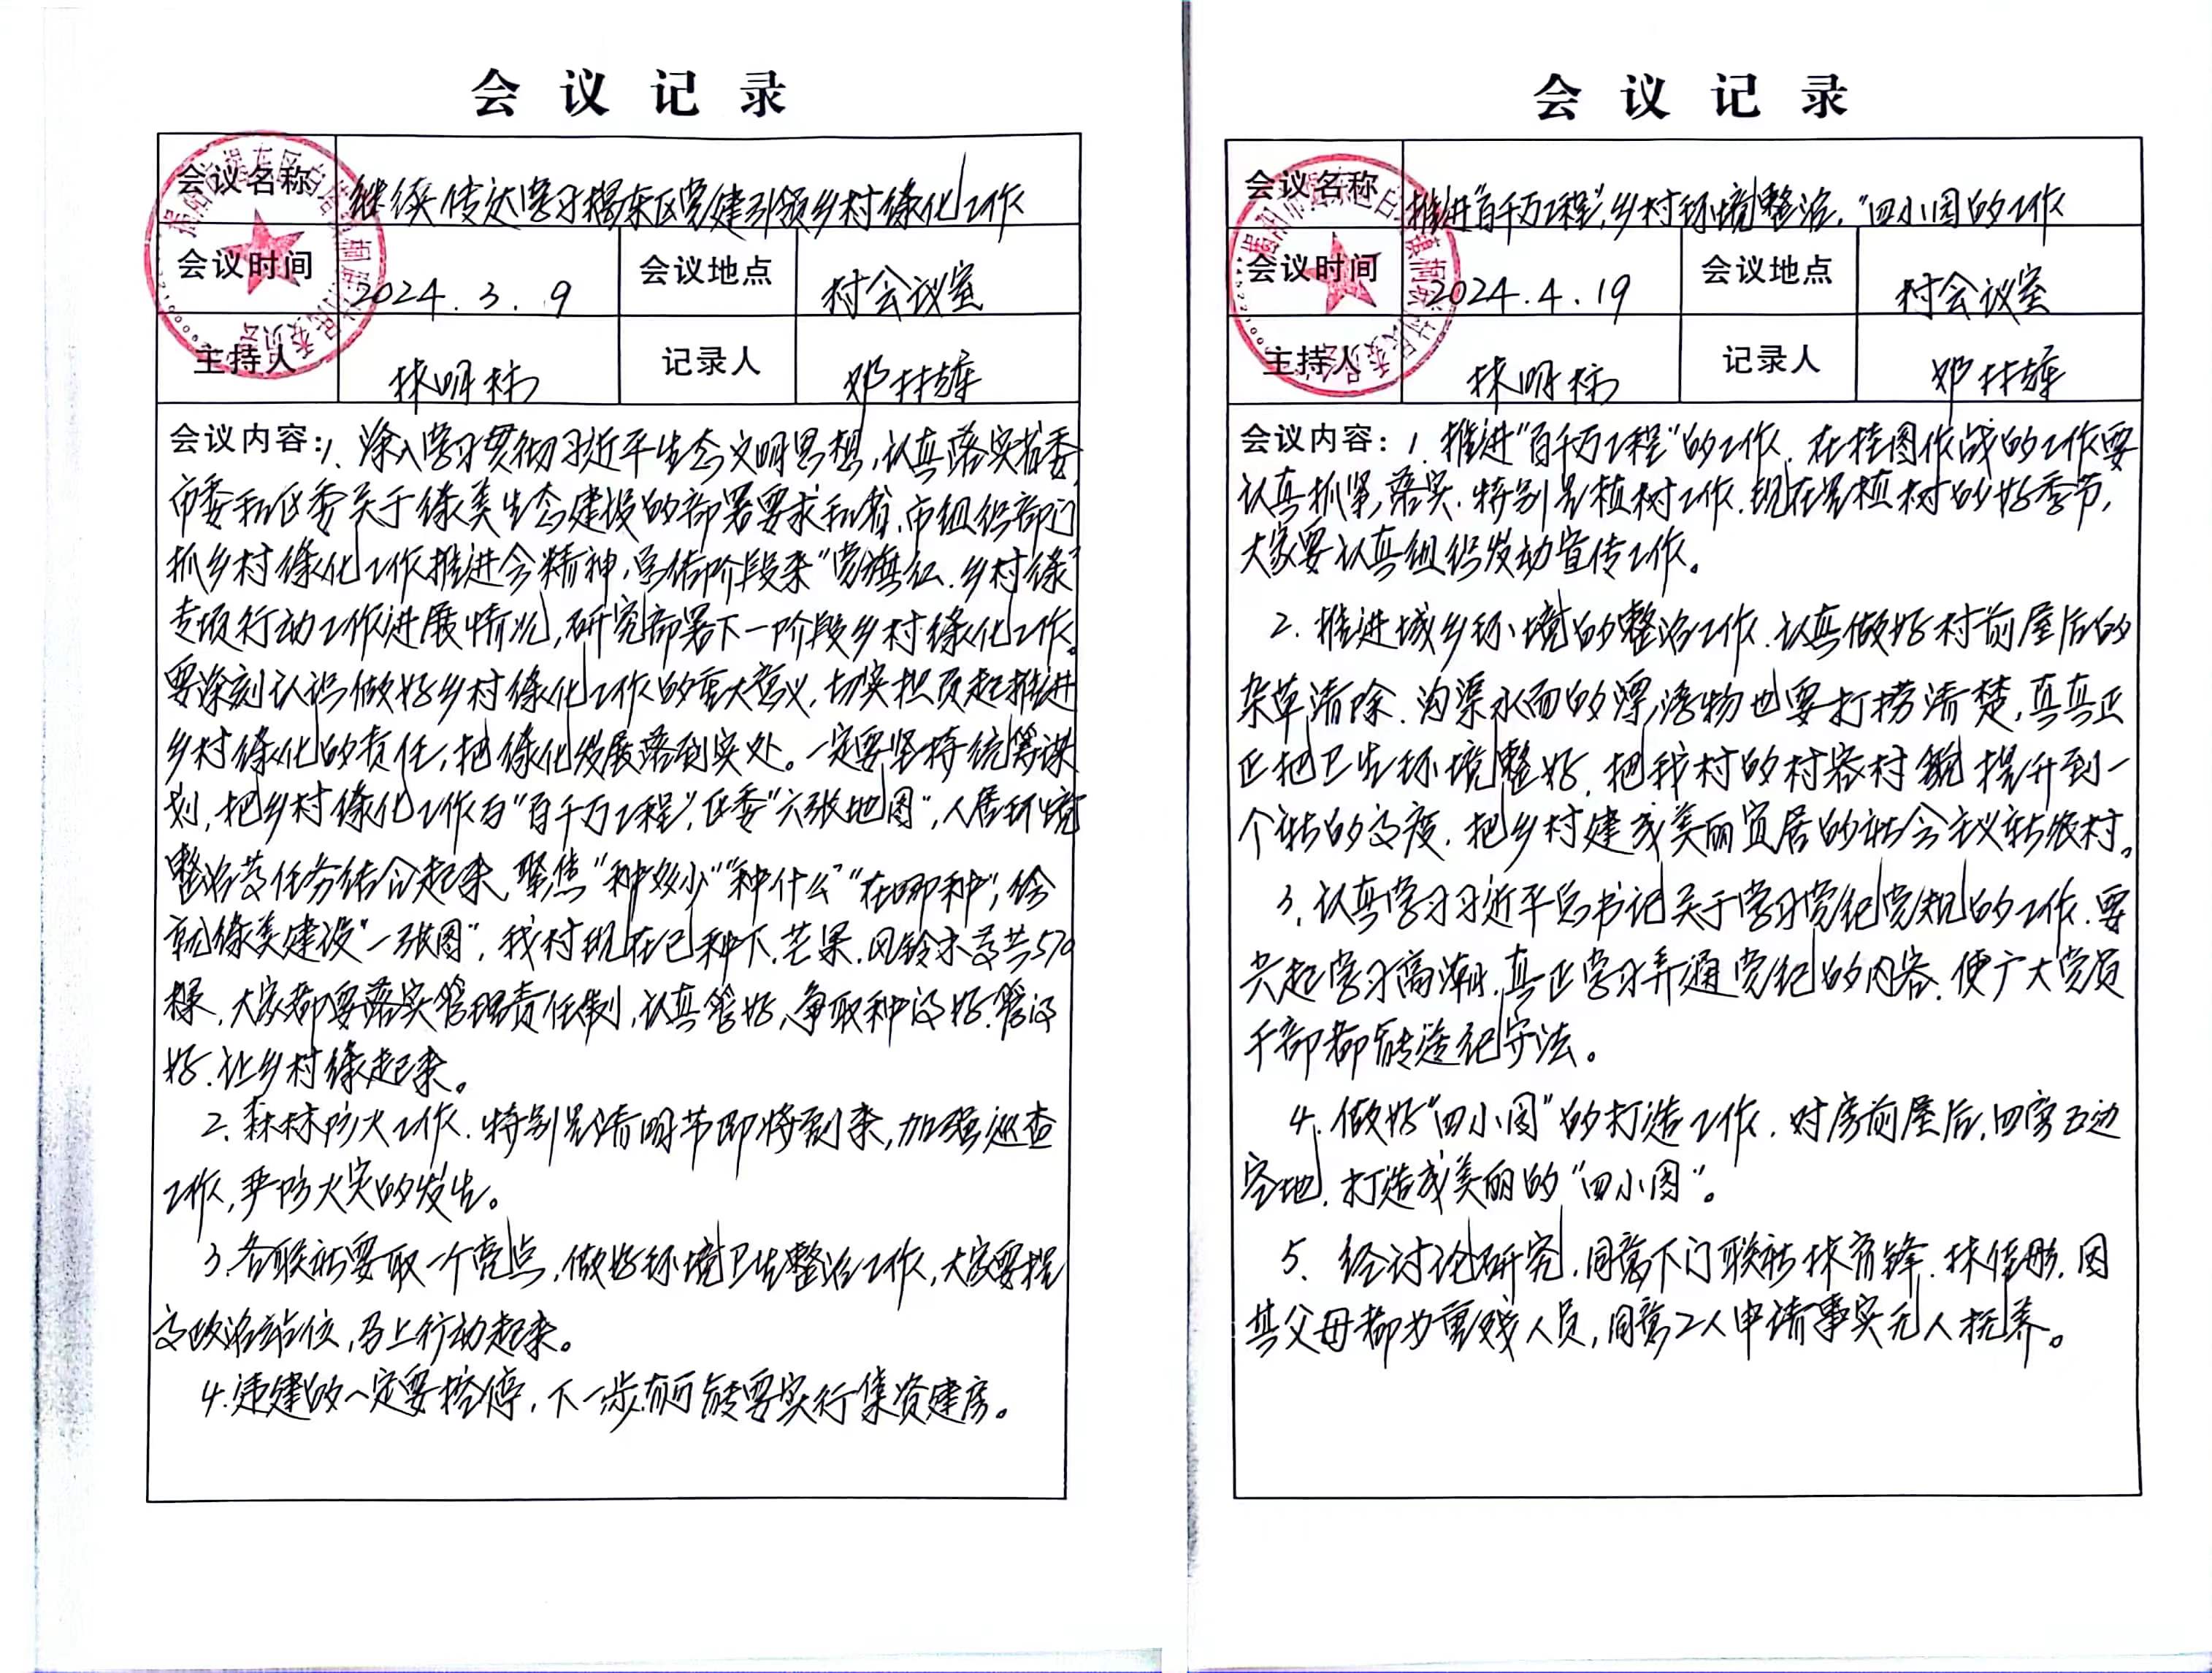 会议记录
会议名称 继续传达学习揭东区党建引领乡村绿化工作
会议时间 2024.3.9 会议地点 村会议室
主持人 林明标 记录人 邓林雄
会议内容：1、深入学习贯彻习近平生态文明思想，认真落实省委
市委和区委关于绿美生态建设的部署要求和省、市组织部门
抓乡村绿化工作推进会精神，总结阶段来“党旗红、乡村绿”
专项行动工作进展情况，研究部署下一阶段乡村绿化工作。
要深刻认识做好乡村绿化工作的重大意义，切实担负起推进
乡村绿化的责任，把绿化发展落到实处。一定要坚持统筹谋
划，把乡村绿化工作与“百千万工程”，区委“六张地图”，人居环境
整治等任务结合起来，聚焦“种多少”“种什么”“在哪种”，绘
就绿美建设“一张图”，我村现在已种下芒果、风铃木等共570
棵，大家都要落实管理责任制，认真管好，争取种得好、管得
好、让乡村绿起来。
2、森林防火工作，特别是清明节即将到来，加强巡查
工作，严防火灾的发生。
3、各联社要取一个亮点，做好环境卫生整治工作，大家要提
高政治站位，马上行动起来。
4、违建的一定要控停，下一步有可能要实行集资建房。
会议记录
会议名称 推进“百千万工程”，乡村环境整治，“四小园”的工作
会议时间 2024.4.19 会议地点 村会议室
主持人 林明标 记录人 邓林雄
会议内容：1、推进“百千万工程”的工作，在挂图作战的工作要
认真抓紧，落实，特别是植树工作，现在是植树的好季节，
大家要认真组织发动宣传工作。
2、推进城乡环境的整治工作，认真做好村前屋后的
杂草清除、沟渠水面的漂浮物也要打捞清楚，真真正
正把卫生环境整好，把我村的村容村貌提升到一
个新的高度，把乡村建成美丽宜居的社会主义新农村。
3、认真学习习近平总书记关于学习党纪党规的工作，要
兴起学习高潮，真正学习弄通党纪的内容，使广大党员
干部都能遵纪守法。
4、做好“四小园”的打造工作，对房前屋后，四旁五边
空地，打造成美丽的“四小园”。
5、经讨论研究，同意下门联社林育锋、林佳彤，因
其父母都为重残人员，同意2人申请事实无人抚养。